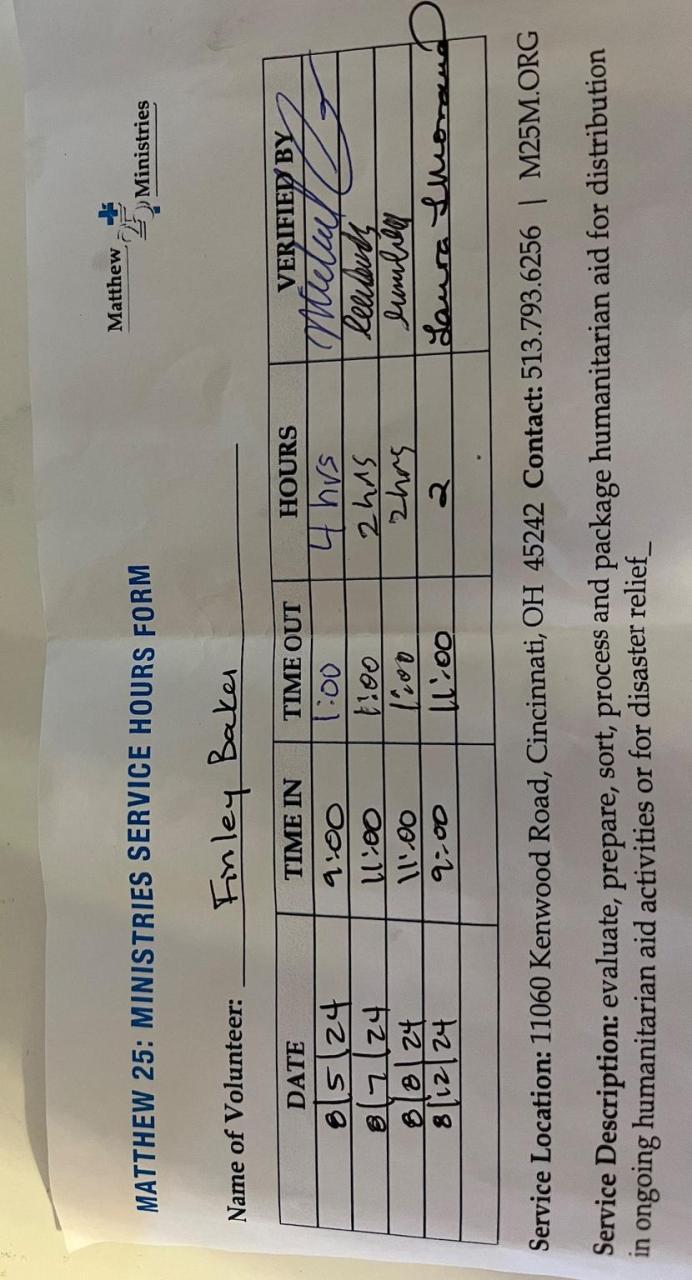 Matthew 25
Ministries
MATTHEW 25: MINISTRIES SERVICE HOURS FORM
Name of Volunteer: Finley Baker
DATE TIME IN TIME OUT HOURS VERIFIED BY
8/5/24 9:00 1:00 4 hrs Michael
8/7/24 11:00 1:00 2 hrs
8/8/24 11:00 1:00 2hrs
8/12/24 9:00 11:00 2 Laura
Service Location: 11060 Kenwood Road, Cincinnati, OH 45242 Contact: 513.793.6256 | M25M.ORG
Service Description: evaluate, prepare, sort, process and package humanitarian aid for distribution
in ongoing humanitarian aid activities or for disaster relief_